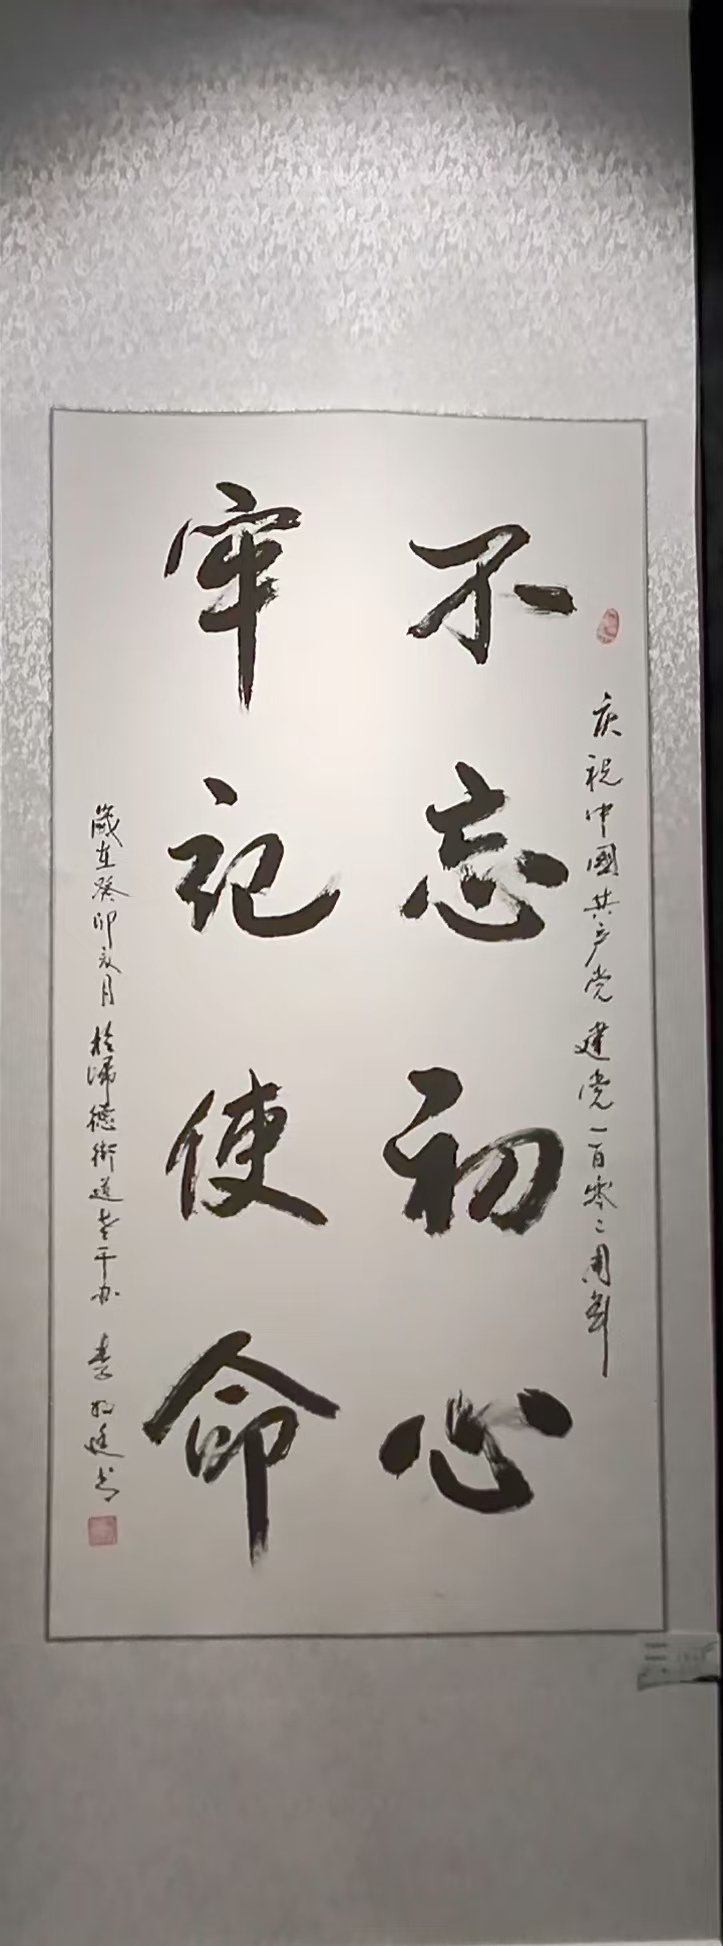 庆祝中国共产党建党一百零二周年
不忘初心
牢记使命
歲在癸卯
月於歸德街道老干办
李
书